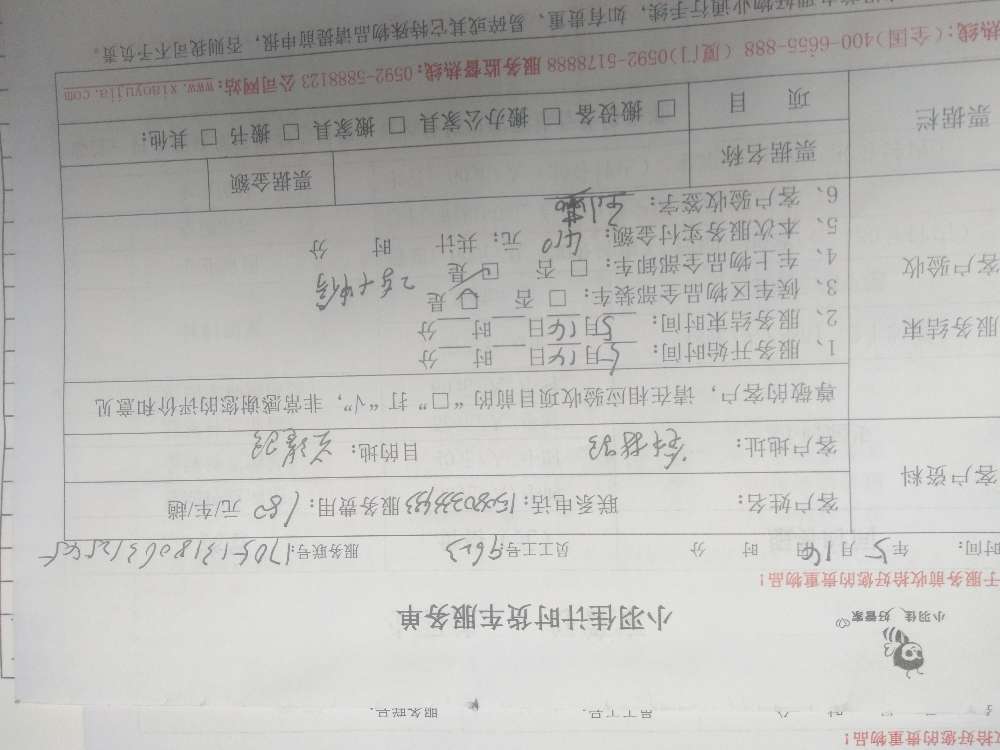 小羽佳 好管家
小羽佳计时货车服务单
于服务前收拾好您的贵重物品！
时间： 年 5 月 14 日 时 分 员工工号：9623 服务联号：
客户资料
客户姓名： 联系电话： 服务费用：180 元/车/趟
客户地址： 目的地：
尊敬的客户，请在相应验收项目前的“□”打“√”，非常感谢您的评价和意见
服务结束
客户验收
1、服务开始时间： 5月14日 时 分
2、服务结束时间： 5月14日 时 分
3、候车区物品全部装车：□ 否 □ 是
4、车上物品全部卸车：□ 否 □ 是
5、本次服务实付金额：410 元；共计 时 分
6、客户验收签字：
票据栏
票据名称 票据金额
项 目 □ 搬设备 □ 搬办公家具 □ 搬家具 □ 搬书 □ 其他：
热线：(全国)400-6655-888 (厦门)0592-5178888 服务监督热线：0592-5888123 公司网站：www.xiaoyujia.com
物业通行手续，如有贵重、易碎或其它特殊物品请提前申报，否则我司不予负责。